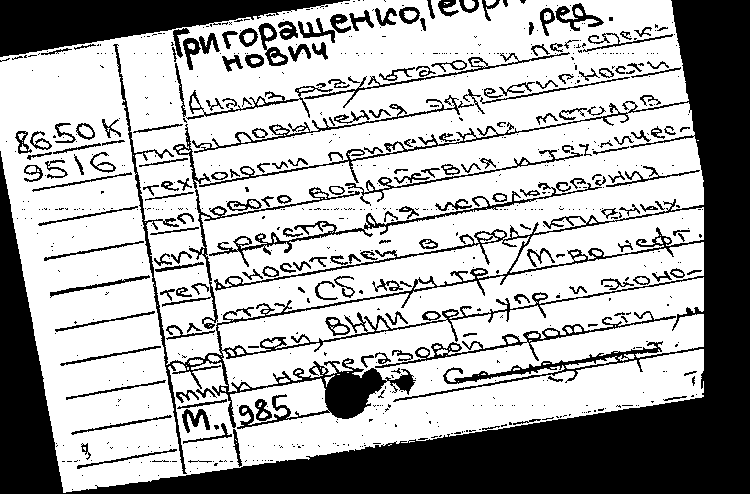 Григоращенко, Георги
нович ,ред.
Анализ результатов и перспек-
86.50К
9516
тивы повышения эффективности
технологии применения методов
теплового воздействия и техничес-
ких средств для использования
теплоносителей в продуктивных
пластах : Сб. науч. тр. / М-во нефт.
пром-сти, ВНИИ орг., упр. и эконо-
мики нефтегазовой пром-сти , "
М., 1985. См. след. карт.